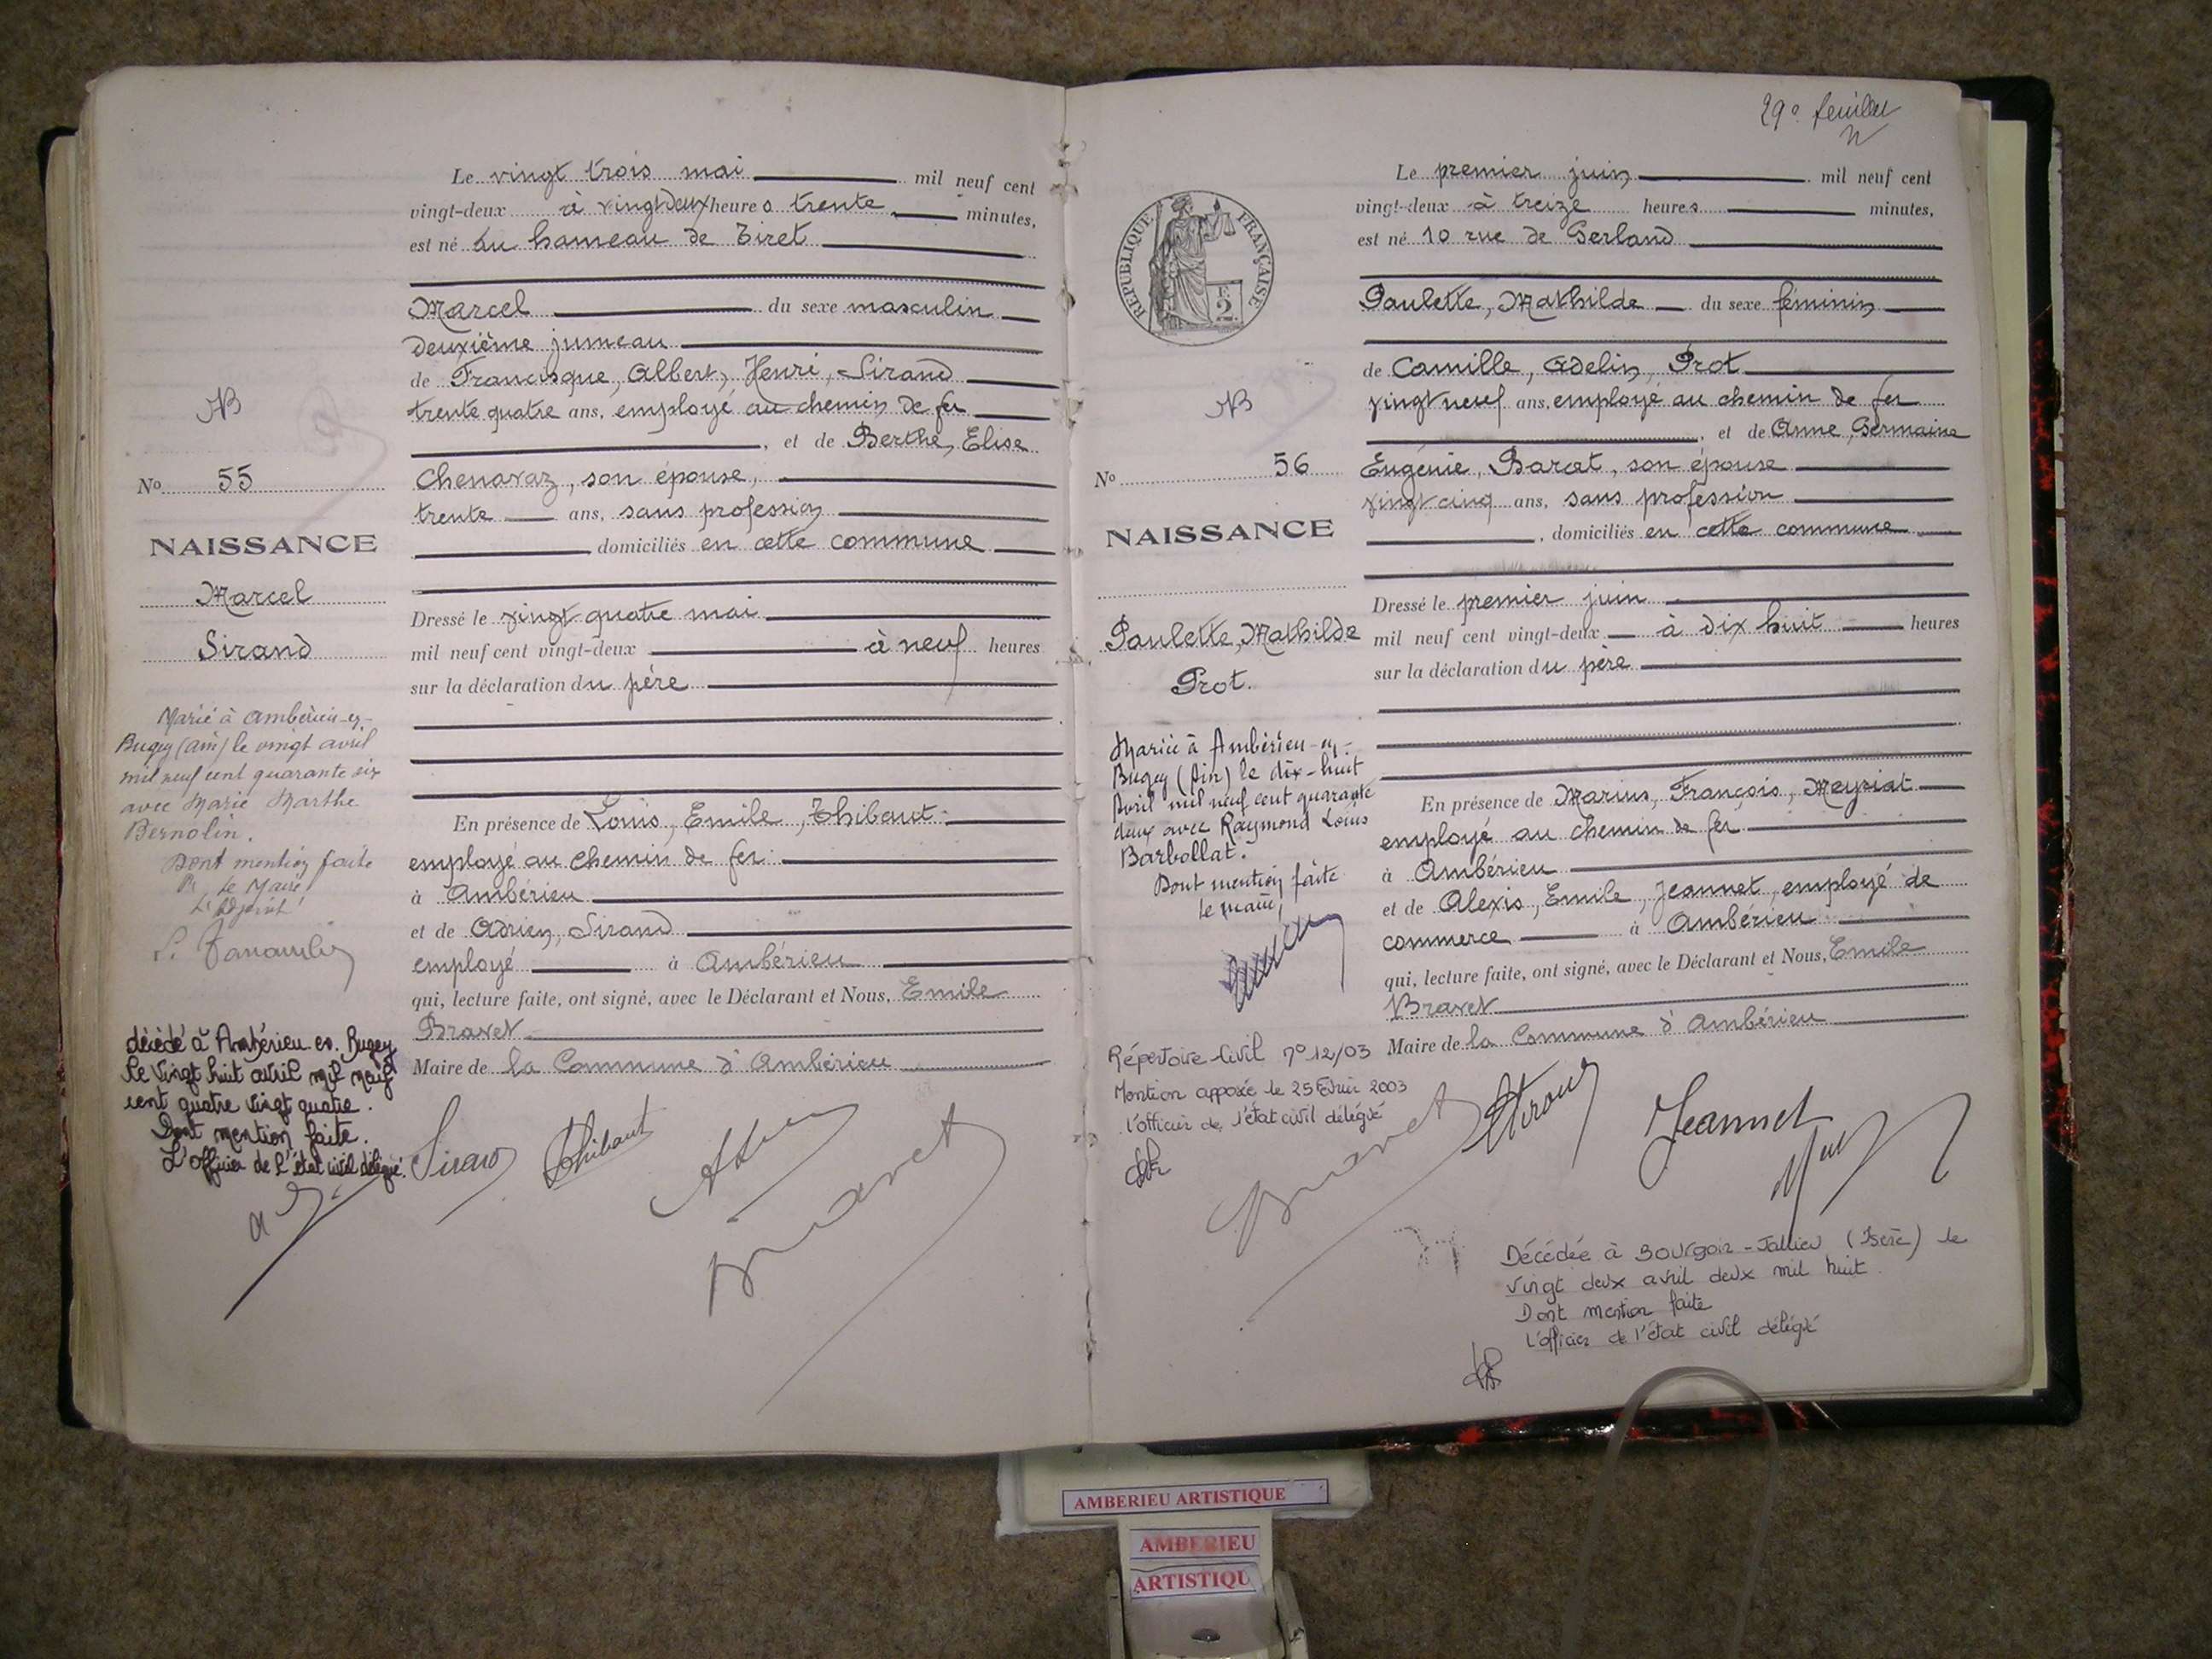 Le vingt trois mai mil neuf cent
vingt-deux à vingt deux heures trente minutes,
est né au hameau de Tiret
Marcel du sexe masculin
deuxième jumeau
de Francisque, Albert, Henri, Sirand
trente quatre ans, employé au chemin de fer
, et de Berthe, Elise
Chenavaz, son épouse,
trente ans, sans profession
domiciliés en cette commune
Dressé le vingt quatre mai
mil neuf cent vingt-deux à neuf heures
sur la déclaration du père
En présence de Louis, Emile, Thibaut
employé au chemin de fer
à Ambérieu
et de Adrien, Sirand
employé à Ambérieu
qui, lecture faite, ont signé, avec le Déclarant et Nous, Emile
Bravet
Maire de la Commune d'Ambérieu
Sirand Thibaut
Bravet
No 55
NAISSANCE
Marcel
Sirand
Marié à Ambérieu-en-
Bugey (Ain) le vingt avril
mil neuf cent quarante six
avec Marie Marthe
Bernolin.
Dont mention faite
Pr Le Maire
L'adjoint
décédé à Ambérieu en Bugey
le vingt huit avril mil neuf
cent quatre vingt quatre.
Dont mention faite.
L'officier de l'état civil délégué.
29e feuillet
REPUBLIQUE FRANÇAISE
F.
2
Le premier juin mil neuf cent
vingt-deux à treize heures minutes,
est né 10 rue de Gerland
Paulette, Mathilde du sexe féminin
de Camille, Adelin, Prot
vingt neuf ans, employé au chemin de fer
, et de Anne, Germaine
Eugénie, Barcat, son épouse
vingt cinq ans, sans profession
, domiciliés en cette commune
Dressé le premier juin
mil neuf cent vingt-deux à dix huit heures
sur la déclaration du père
En présence de Marius, François, Meyriat
employé au chemin de fer
à Ambérieu
et de Alexis, Emile, Jeannet, employé de
commerce à Ambérieu
qui, lecture faite, ont signé, avec le Déclarant et Nous, Emile
Bravet
Maire de la Commune d'Ambérieu
Bravet Jeannet
No 56
NAISSANCE
Paulette, Mathilde
Prot.
Mariée à Ambérieu-en-
Bugey (Ain) le dix-huit
Avril mil neuf cent quarante
deux avec Raymond Louis
Barbollat.
Dont mention faite
Le maire,
Répertoire Civil n° 12/03
Mention apposée le 25 Février 2003
l'officier de l'état civil délégué
Décédée à Bourgoin-Jallieu (Isère) le
vingt deux avril deux mil huit
Dont mention faite
L'officier de l'état civil délégué
AMBERIEU ARTISTIQUE
AMBERIEU
ARTISTIQU